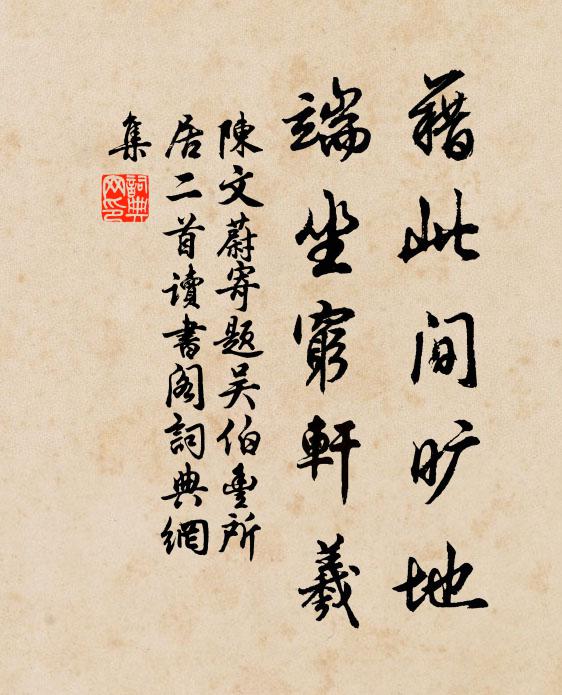 藉此间旷地
端坐窮軒羲
陳文蔚寄题吴伯豊所
居二首讀書阁詞典網
集
詞典
网印